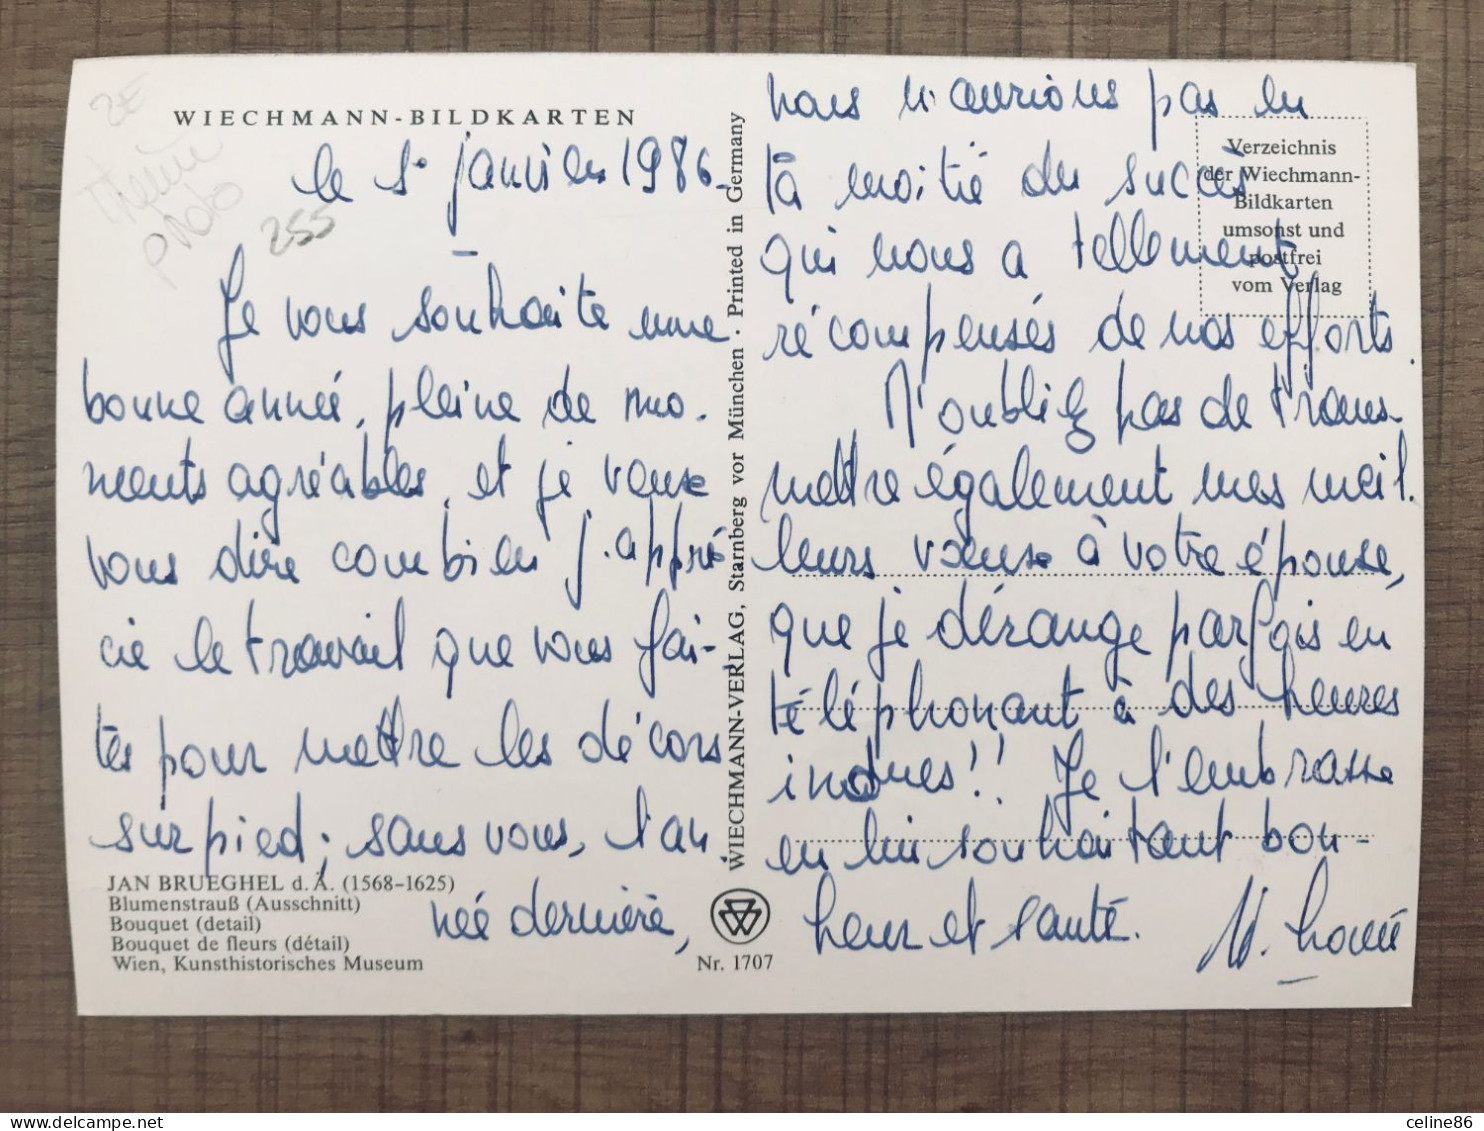 WIECHMANN-BILDKARTEN
2€
255
le 1° janvier 1986.
Je vous souhaite une
bonne année, pleine de mo-
ments agréables, et je veux
vous dire combien j'appré
cie le travail que vous fai-
tes pour mettre les décors
sur pied; sans vous, l'an.
née dernière,
JAN BRUEGHEL d. Ä. (1568–1625)
Blumenstrauß (Ausschnitt)
Bouquet (detail)
Bouquet de fleurs (détail)
Wien, Kunsthistorisches Museum
WIECHMANN-VERLAG, Starnberg vor München · Printed in Germany
Nr. 1707
nous n'aurions pas eu
la moitié du succès
qui nous a tellement
récompensés de nos efforts.
N'oubliez pas de trans-
mettre également mes meil.
leurs vœux à votre épouse,
que je dérange parfois en
téléphonant à des heures
indues!! Je l'embrasse
en lui souhaitant bon-
heur et santé.
Verzeichnis
der Wiechmann-
Bildkarten
umsonst und
postfrei
vom Verlag
celine86
delcampe.net